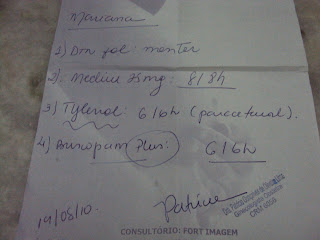 Mariana
1) Don gol: manter
2) Meclin 25mg: 8/8h
3) Tylenol: 6/6h (paracetamol).
4) Buscopam Plus: 6/6h
Patrícia
19/08/10.
CONSULTÓRIO: FORT IMAGEM